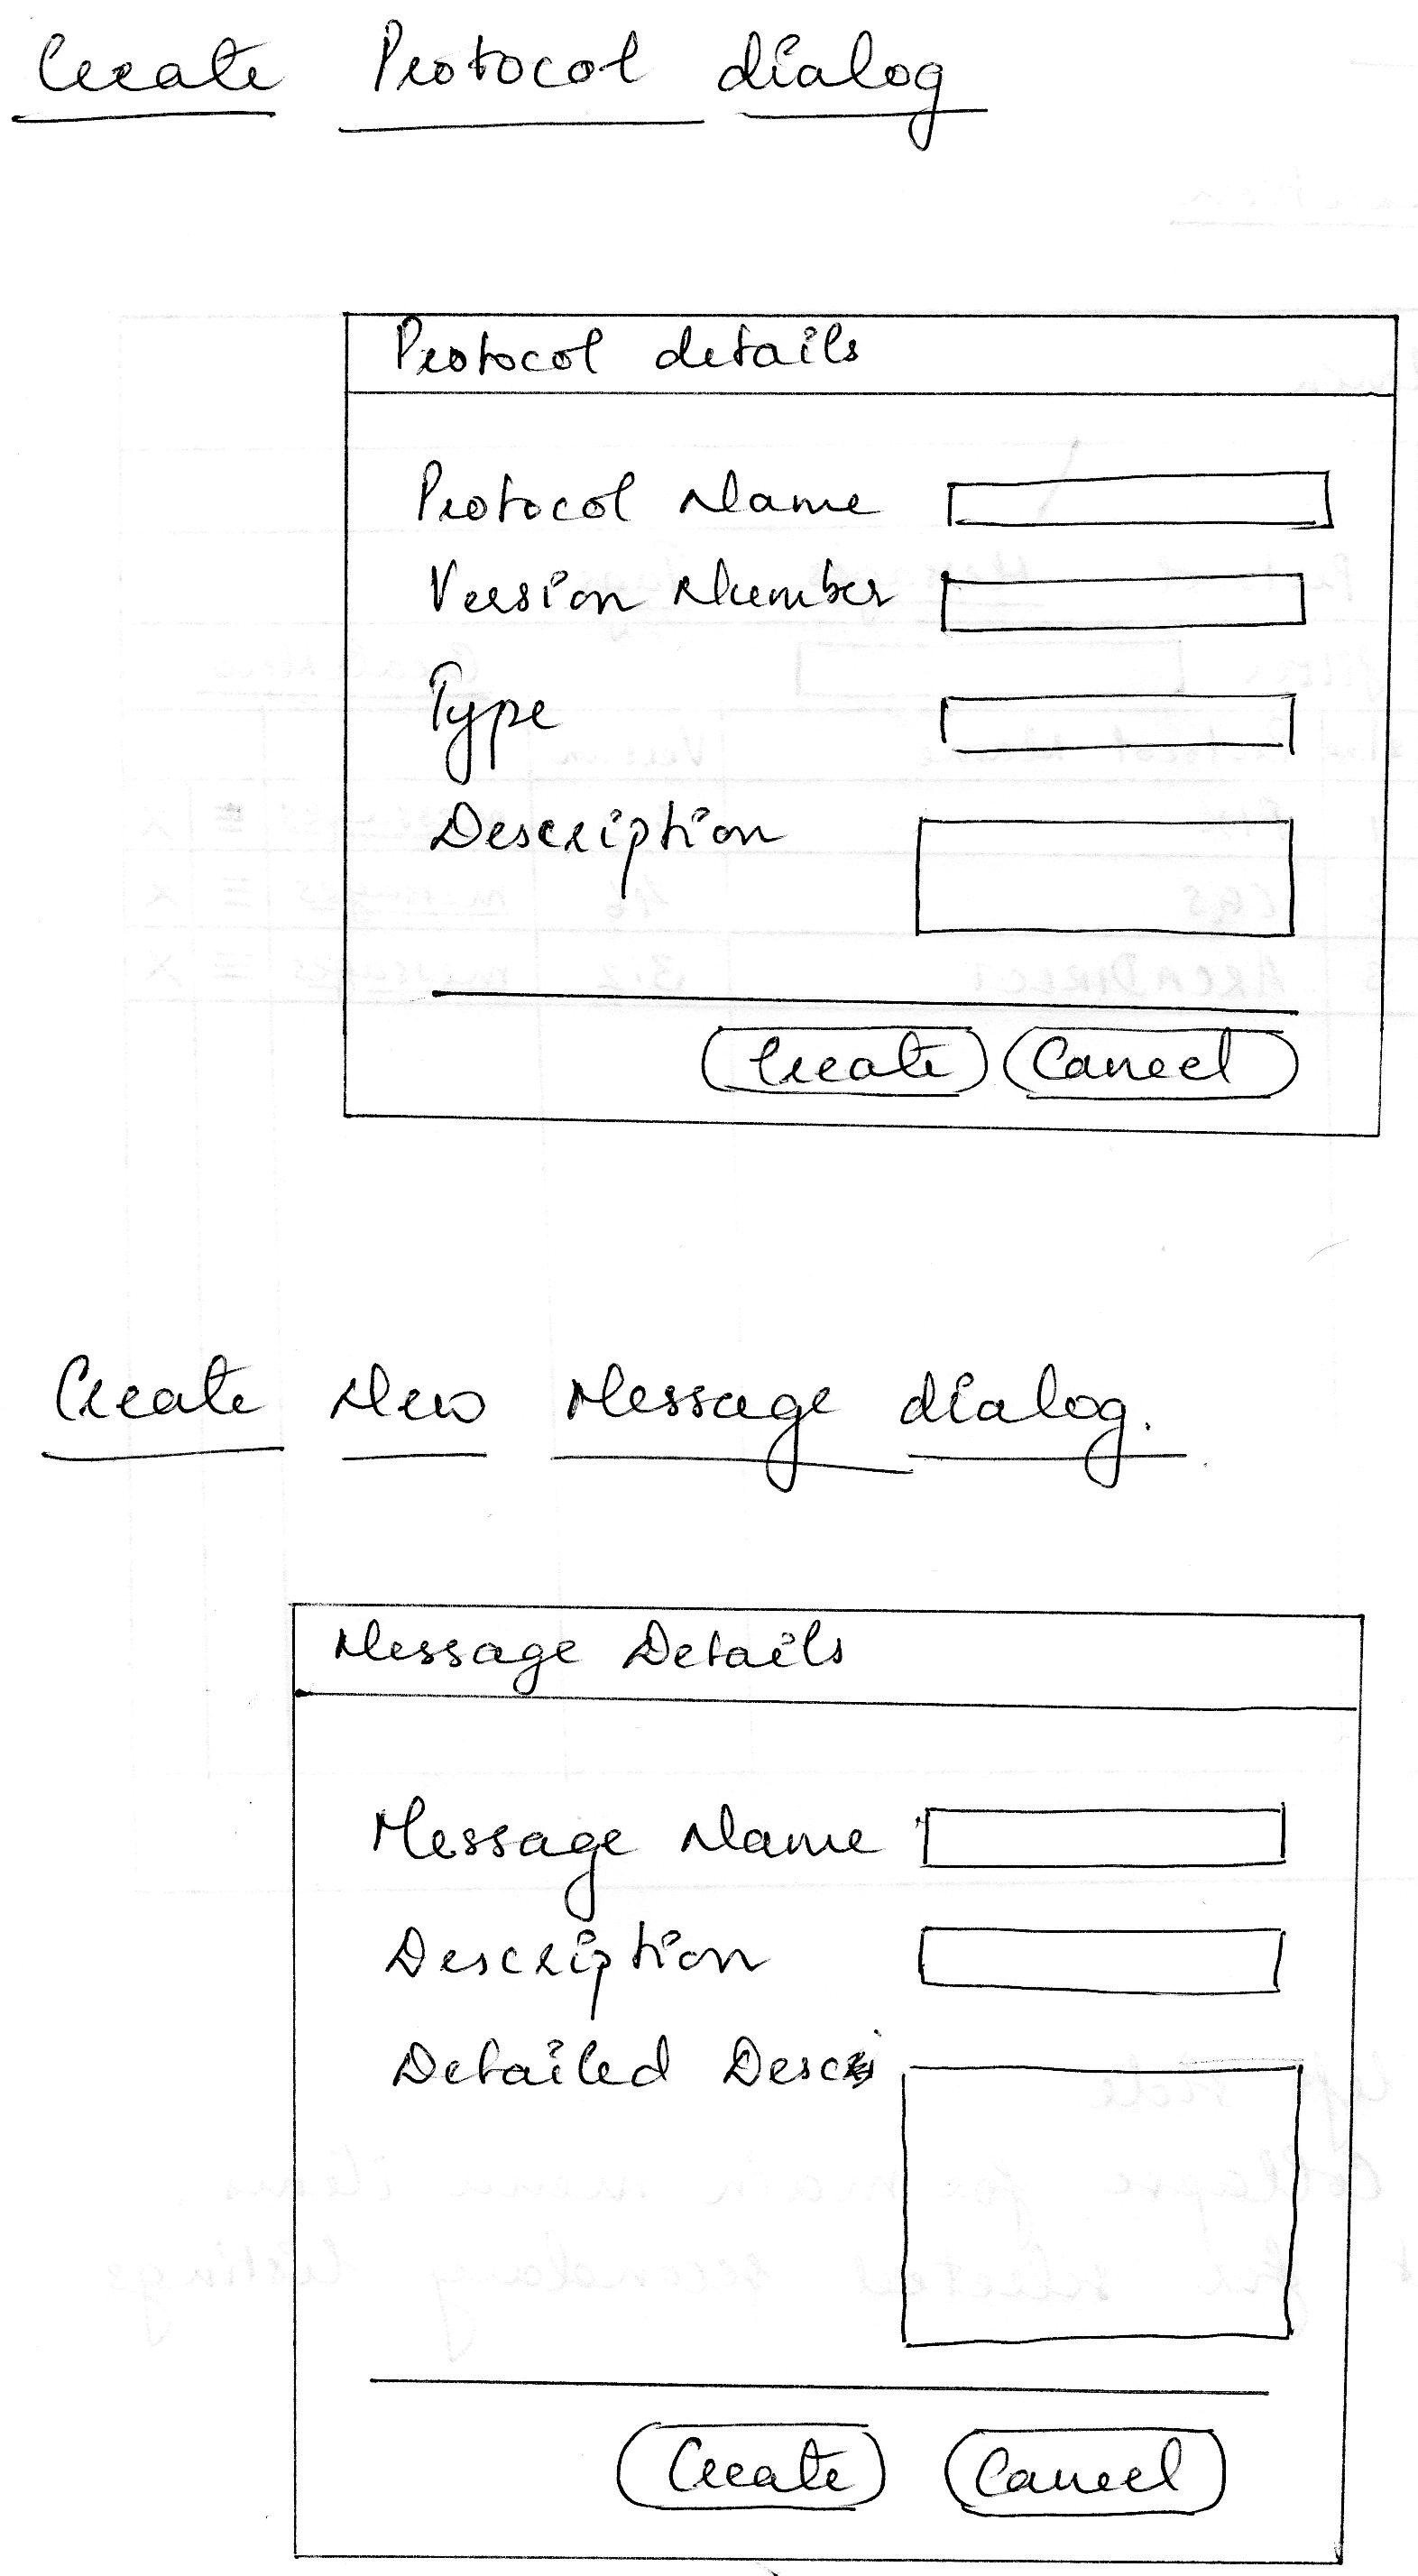 Create Protocol dialog
Protocol details
Protocol Name
Version Number
Type
Description
Create Cancel
Create New Message dialog.
Message Details
Message Name
Description
Detailed Desc
Create Cancel